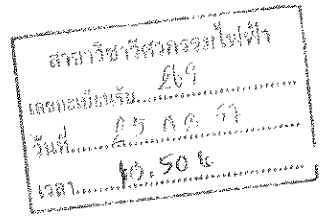 สาขาวิชาวิศวกรรมไฟฟ้า
เลขทะเบียนรับ
วันที่ 25
เวลา 10.50 น